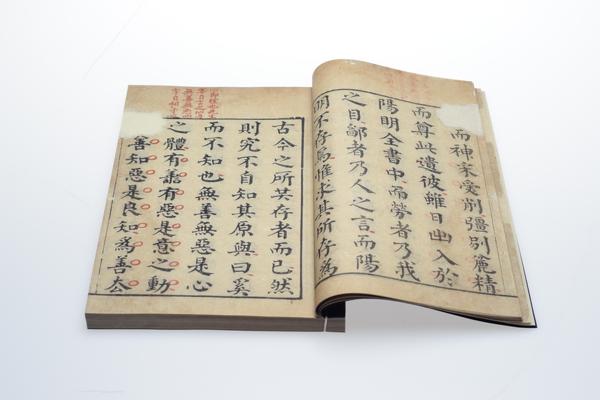 而神受削彊別麄精
而尊此遺彼雖日幽入於
陽明全書中而勞者乃我
之目鄙者乃人之言而陽
明不存焉惟求其所存爲
古今之所共存者而已然
則究不自知其原與曰奚
而不知也無善無惡是心
之體有善有惡是意之動
善知惡是良知為善厺